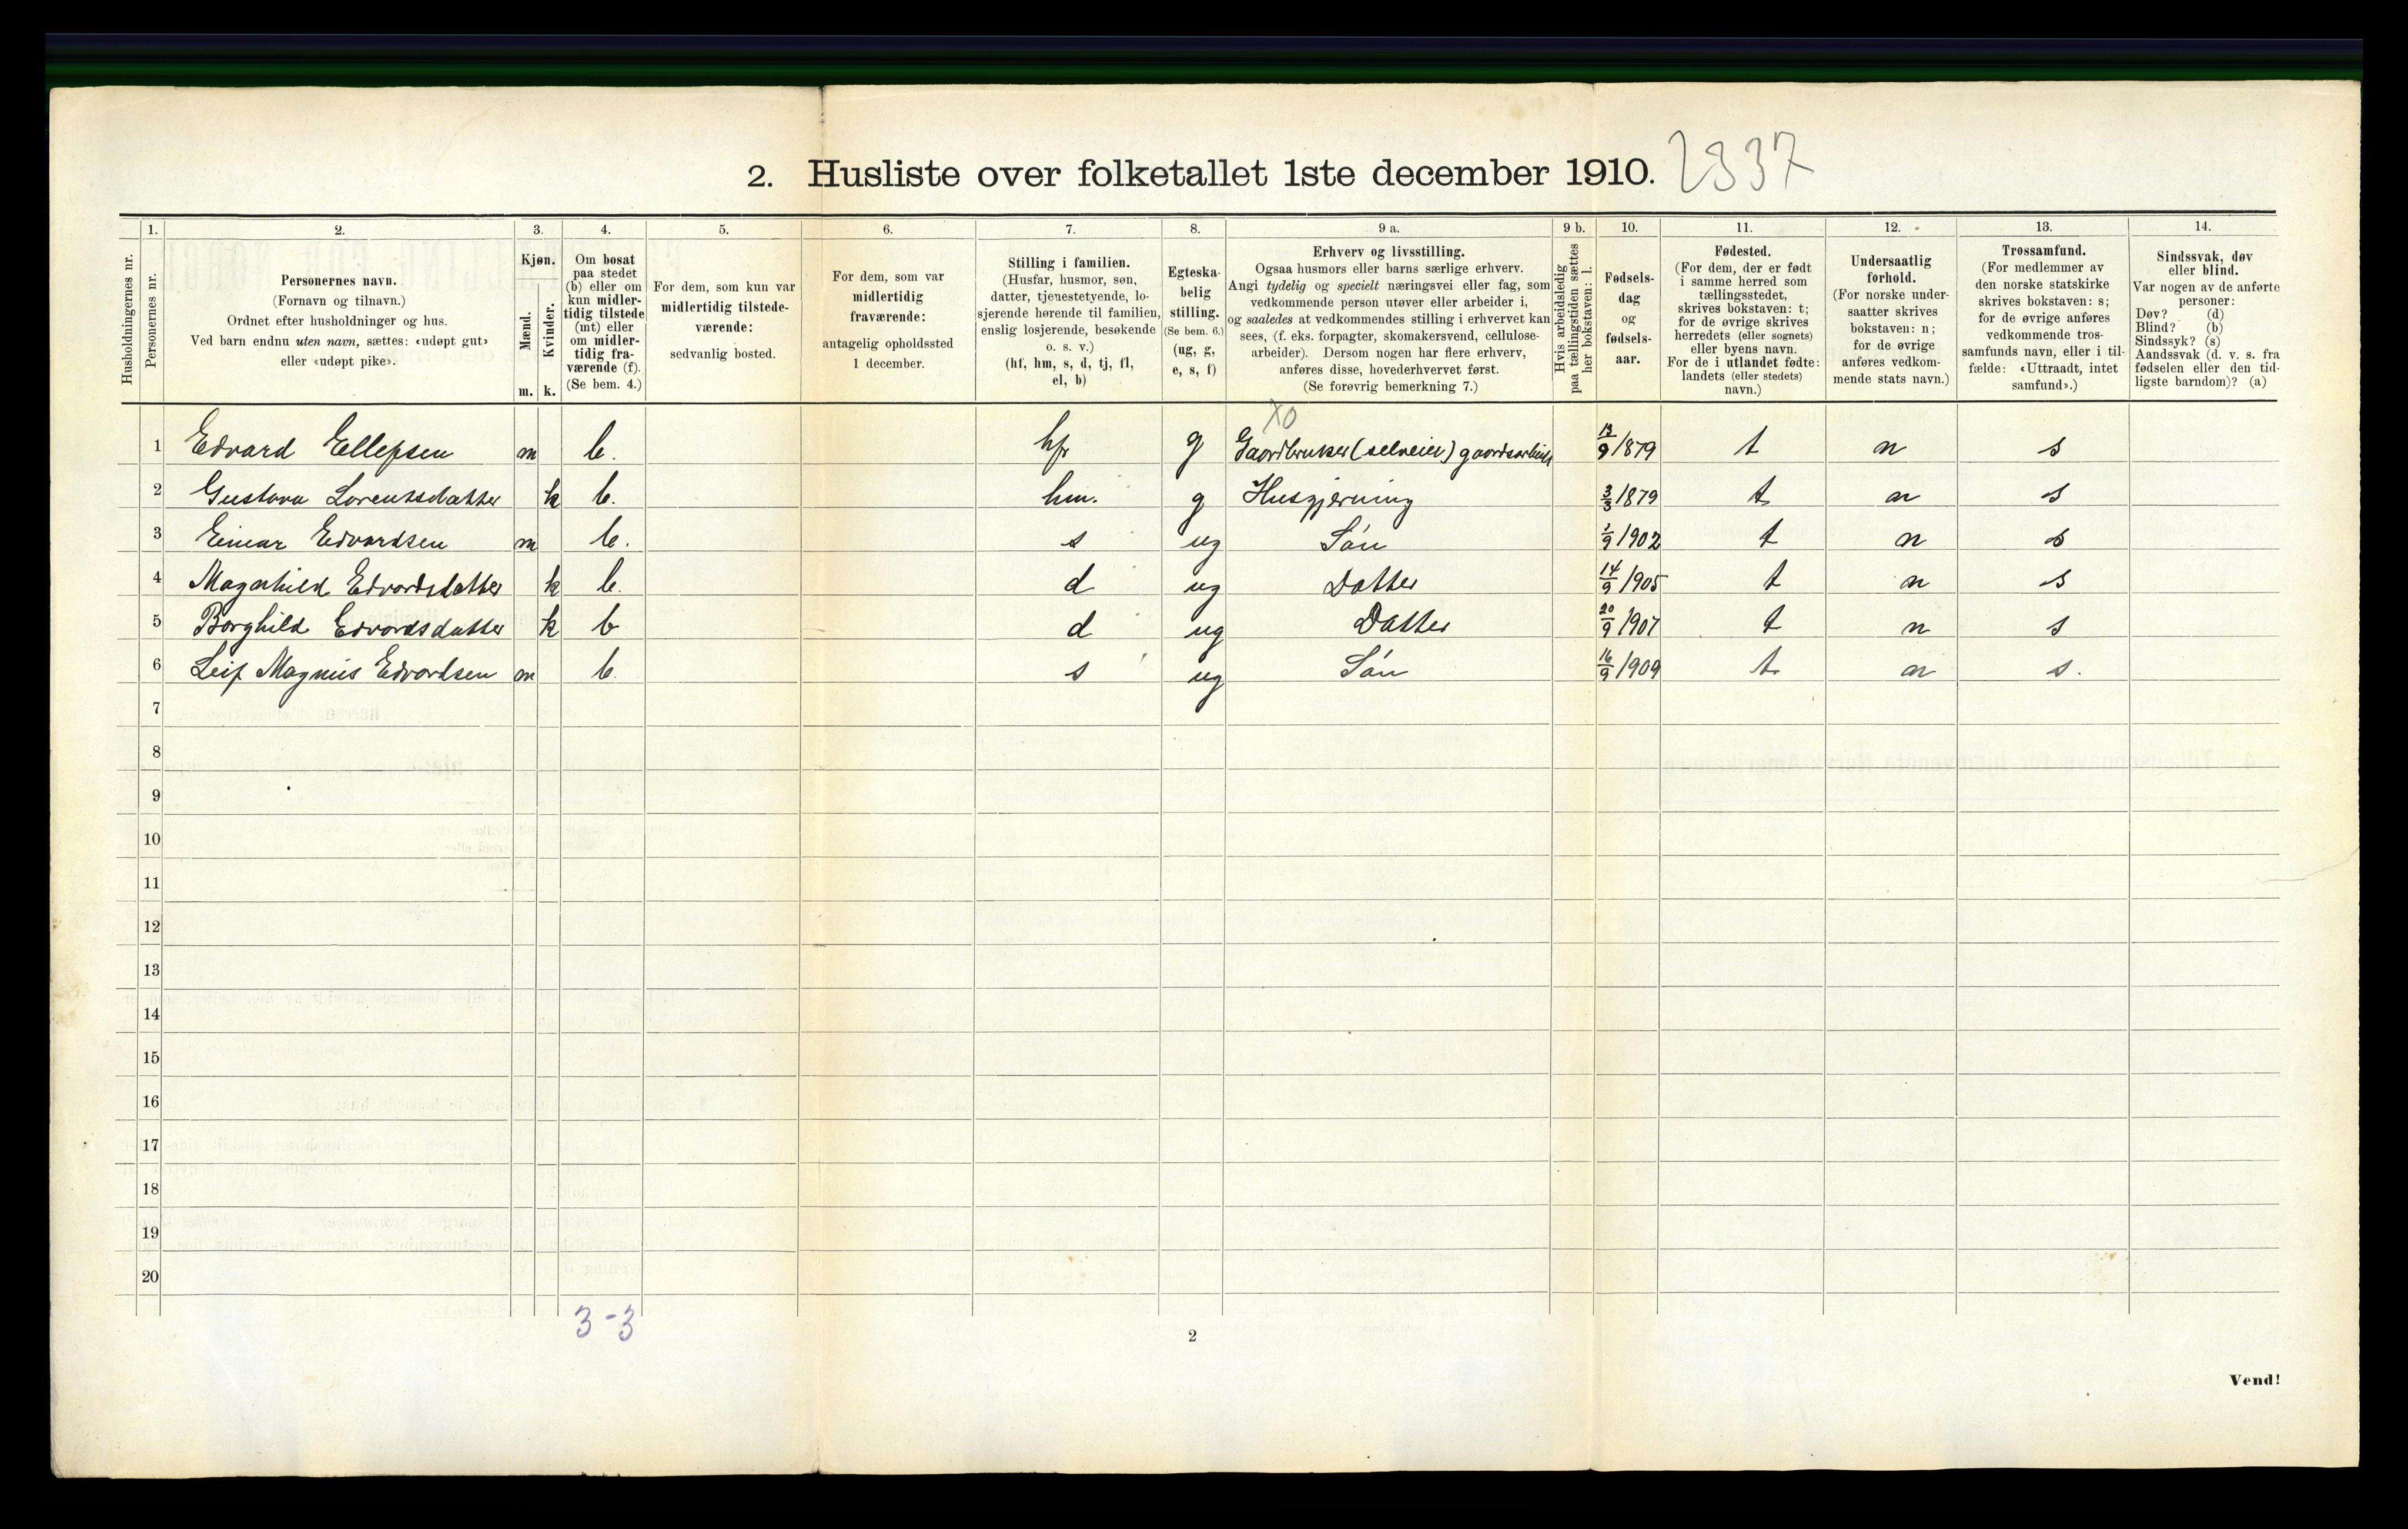 2. Husliste over folketallet 1ste december 1910. 2337
1. 2. 3. 4. 5. 6. 7. 8. 9 a. 9 b. 10. 11. 12. 13. 14.
Husholdningernes nr.
Personernes nr.
Personernes navn.
(Fornavn og tilnavn.)
Ordnet efter husholdninger og hus.
Ved barn endnu uten navn, sættes: «udøpt gut»
eller «udøpt pike».
Kjøn.
Mænd.
Kvinder.
m. k.
Om bosat
paa stedet
(b) eller om
kun midler-
tidig tilstede
(mt) eller
om midler-
tidig fra-
værende (f).
(Se bem. 4.)
For dem, som kun var
midlertidig tilstede-
værende:
sedvanlig bosted.
For dem, som var
midlertidig
fraværende:
antagelig opholdssted
1 december.
Stilling i familien.
(Husfar, husmor, søn,
datter, tjenestetyende, lo-
sjerende hørende til familien,
enslig losjerende, besøkende
o. s. v.)
(hf, hm, s, d, tj, fl,
el, b)
Egteska-
belig
stilling.
(Se bem. 6.)
(ug, g,
e, s, f)
Erhverv og livsstilling.
Ogsaa husmors eller barns særlige erhverv.
Angi tydelig og specielt næringsvei eller fag, som
vedkommende person utøver eller arbeider i,
og saaledes at vedkommendes stilling i erhvervet kan
sees, (f. eks. forpagter, skomakersvend, cellulose-
arbeider). Dersom nogen har flere erhverv,
anføres disse, hovederhvervet først.
(Se forøvrig bemerkning 7.)
Hvis arbeidsledig
paa tællingstiden sættes
her bokstaven: l.
Fødsels-
dag
og
fødsels-
aar.
Fødested.
(For dem, der er født
i samme herred som
tællingsstedet,
skrives bokstaven: t;
for de øvrige skrives
herredets (eller sognets)
eller byens navn.
For de i utlandet fødte:
landets (eller stedets)
navn.)
Undersaatlig
forhold.
(For norske under-
saatter skrives
bokstaven: n;
for de øvrige
anføres vedkom-
mende stats navn.)
Trossamfund.
(For medlemmer av
den norske statskirke
skrives bokstaven: s;
for de øvrige anføres
vedkommende tros-
samfunds navn, eller i til-
fælde: «Uttraadt, intet
samfund».)
Sindssvak, døv
eller blind.
Var nogen av de anførte
personer:
Døv? (d)
Blind? (b)
Sindssyk? (s)
Aandssvak (d. v. s. fra
fødselen eller den tid-
ligste barndom)? (a)
X0
1 Edvard Ellefsen m b. hf g Gaardbruker (selveier) gaardsarbeide 13/9 1879 t n s
2 Gustava Lorentsdatter k b. hm. g Husgjerning 3/3 1879 t n s
3 Einar Edvardsen m b. s ug Søn 1/9 1902 t n s
4 Magnhild Edvardsdatter k b. d ug Datter 14/9 1905 t n s
5 Borghild Edvardsdatter k b d ug Datter 20/9 1907 t n s
6 Leif Magnus Edvardsen m b. s ug Søn 16/9 1909 t n s.
7
8
9
10
11
12
13
14
15
16
17
18
19
20
3-3
2
Vend!